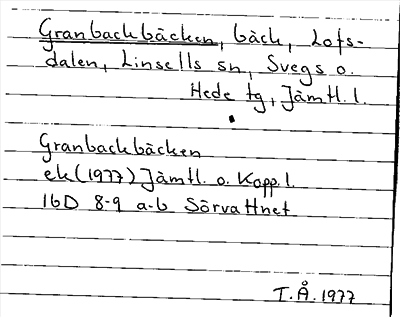 Granbackbäcken, bäck, Lofs-
dalen, Linsells sn, Svegs o.
Hede tg, Jämtl. l.
Granbackbäcken
ek (1977) Jämtl. o. Kopp. l.
16D 8-9 a-b Sörvattnet
T.Å. 1977